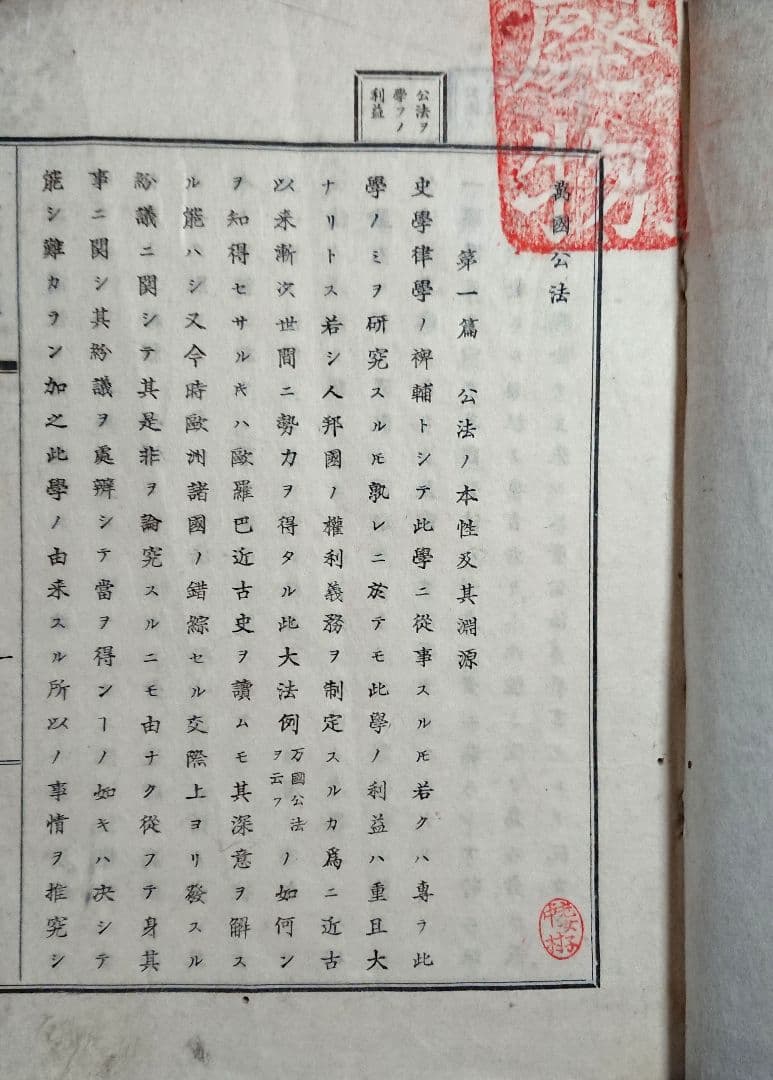 公法ヲ
學フノ
利益
萬國公法
第一篇 公法ノ本性及其淵源
史學律學ノ裨輔トシテ此學ニ從事スルㇳモ若クハ專ラ此
學ノミヲ研究スルㇳモ孰レニ於テモ此學ノ利益ハ重且大
ナリトス若シ人邦國ノ權利義務ヲ制定スルカ爲ニ近古
以来漸次世間ニ勢力ヲ得タル此大法例万國公法ヲ云フノ如何ン
ヲ知得セサル𪜈ハ歐羅巴近古史ヲ讀ムモ其深意ヲ解ス
ル能ハシ又今時歐洲諸國ノ錯綜セル交際上ヨリ發スル
紛議ニ関シテ其是非ヲ論究スルニモ由ナク從フテ身其
事ニ関シ其紛議ヲ處辨シテ當ヲ得ンヿノ如キハ决シテ
能シ難カラン加之此學ノ由来スル所以ノ事情ヲ推究シ